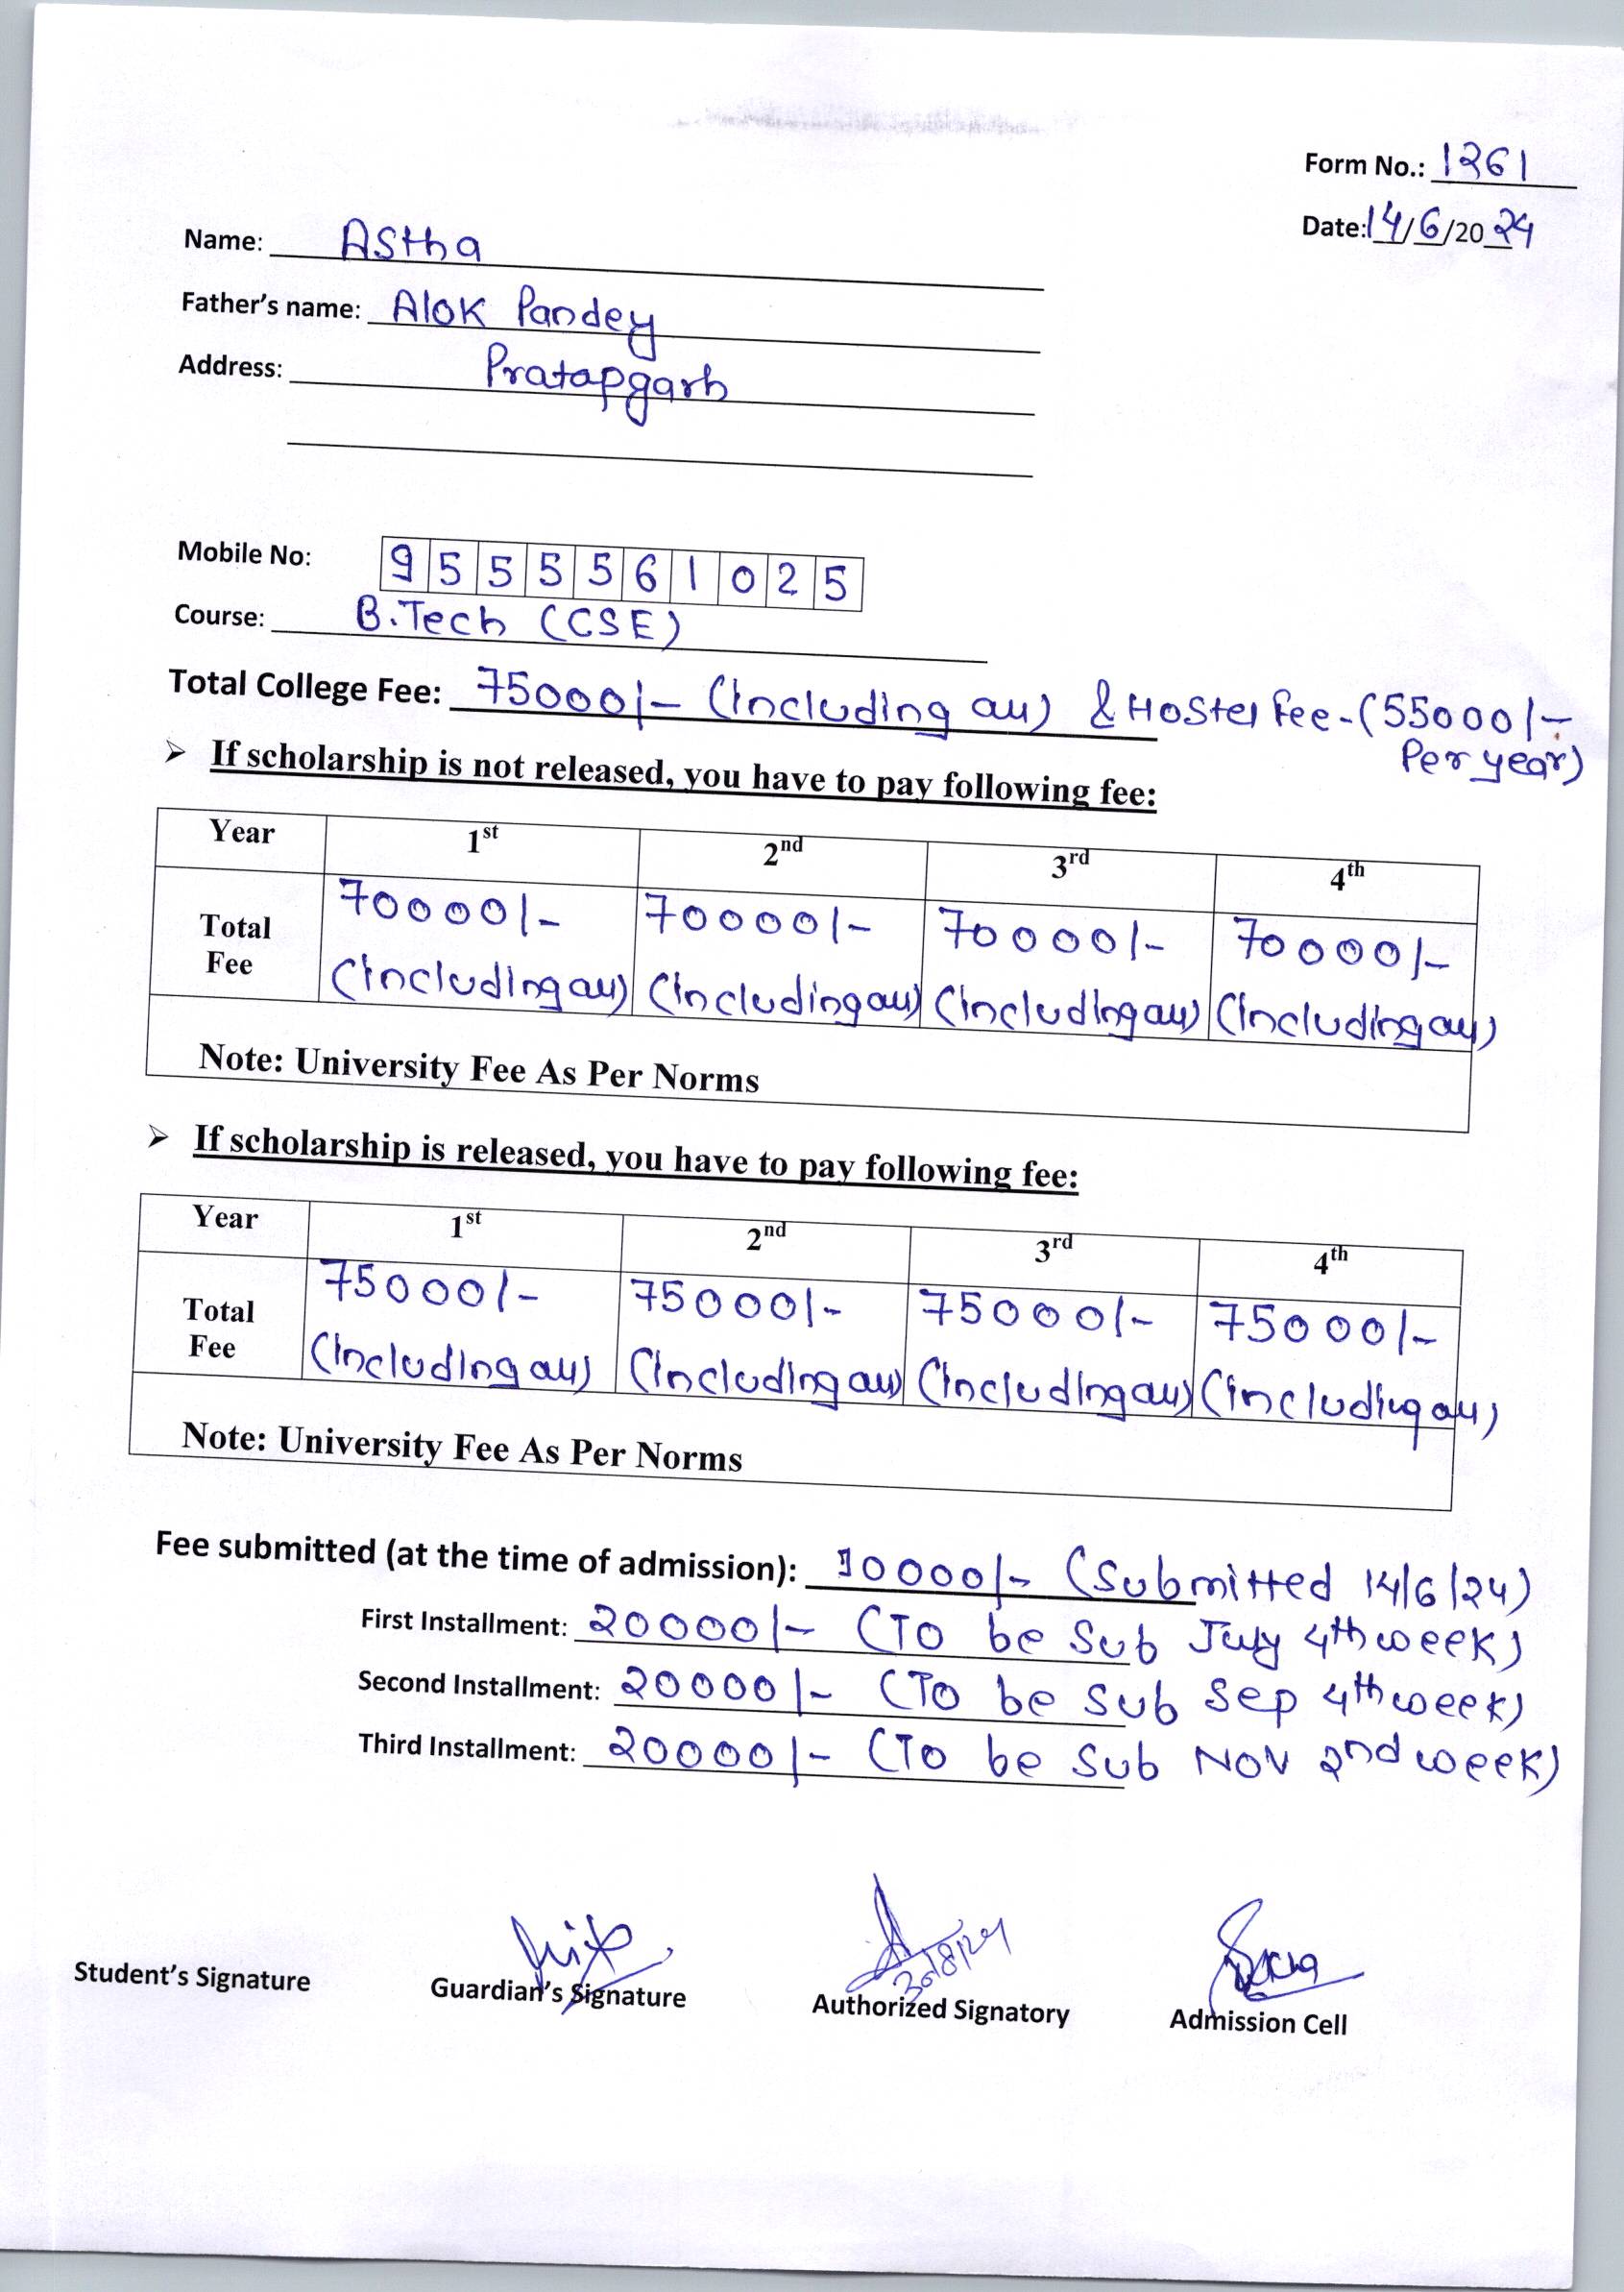 Form No.: 1261
Date: 14/6/2024
Name: Astha
Father's name: Alok Pandey
Address: Pratapgarh
Mobile No: 9555561025
Course: B.Tech (CSE)
Total College Fee: 75000/- (Including all) & Hostel Fee - (55000/-
Per year)
➢ If scholarship is not released, you have to pay following fee:
Year 1st 2nd 3rd 4th
Total Fee 70000/- 70000/- 70000/- 70000/-
(Including all) (Including all) (Including all) (Including all)
Note: University Fee As Per Norms
➢ If scholarship is released, you have to pay following fee:
Year 1st 2nd 3rd 4th
Total Fee 75000/- 75000/- 75000/- 75000/-
(Including all) (Including all) (Including all) (Including all)
Note: University Fee As Per Norms
Fee submitted (at the time of admission): 10000/- (Submitted 14/6/24)
First Installment: 20000/- (To be Sub July 4th week)
Second Installment: 20000/- (To be Sub Sep 4th week)
Third Installment: 20000/- (To be Sub Nov 2nd week)
30/8/24
Student's Signature Guardian's Signature Authorized Signatory Admission Cell